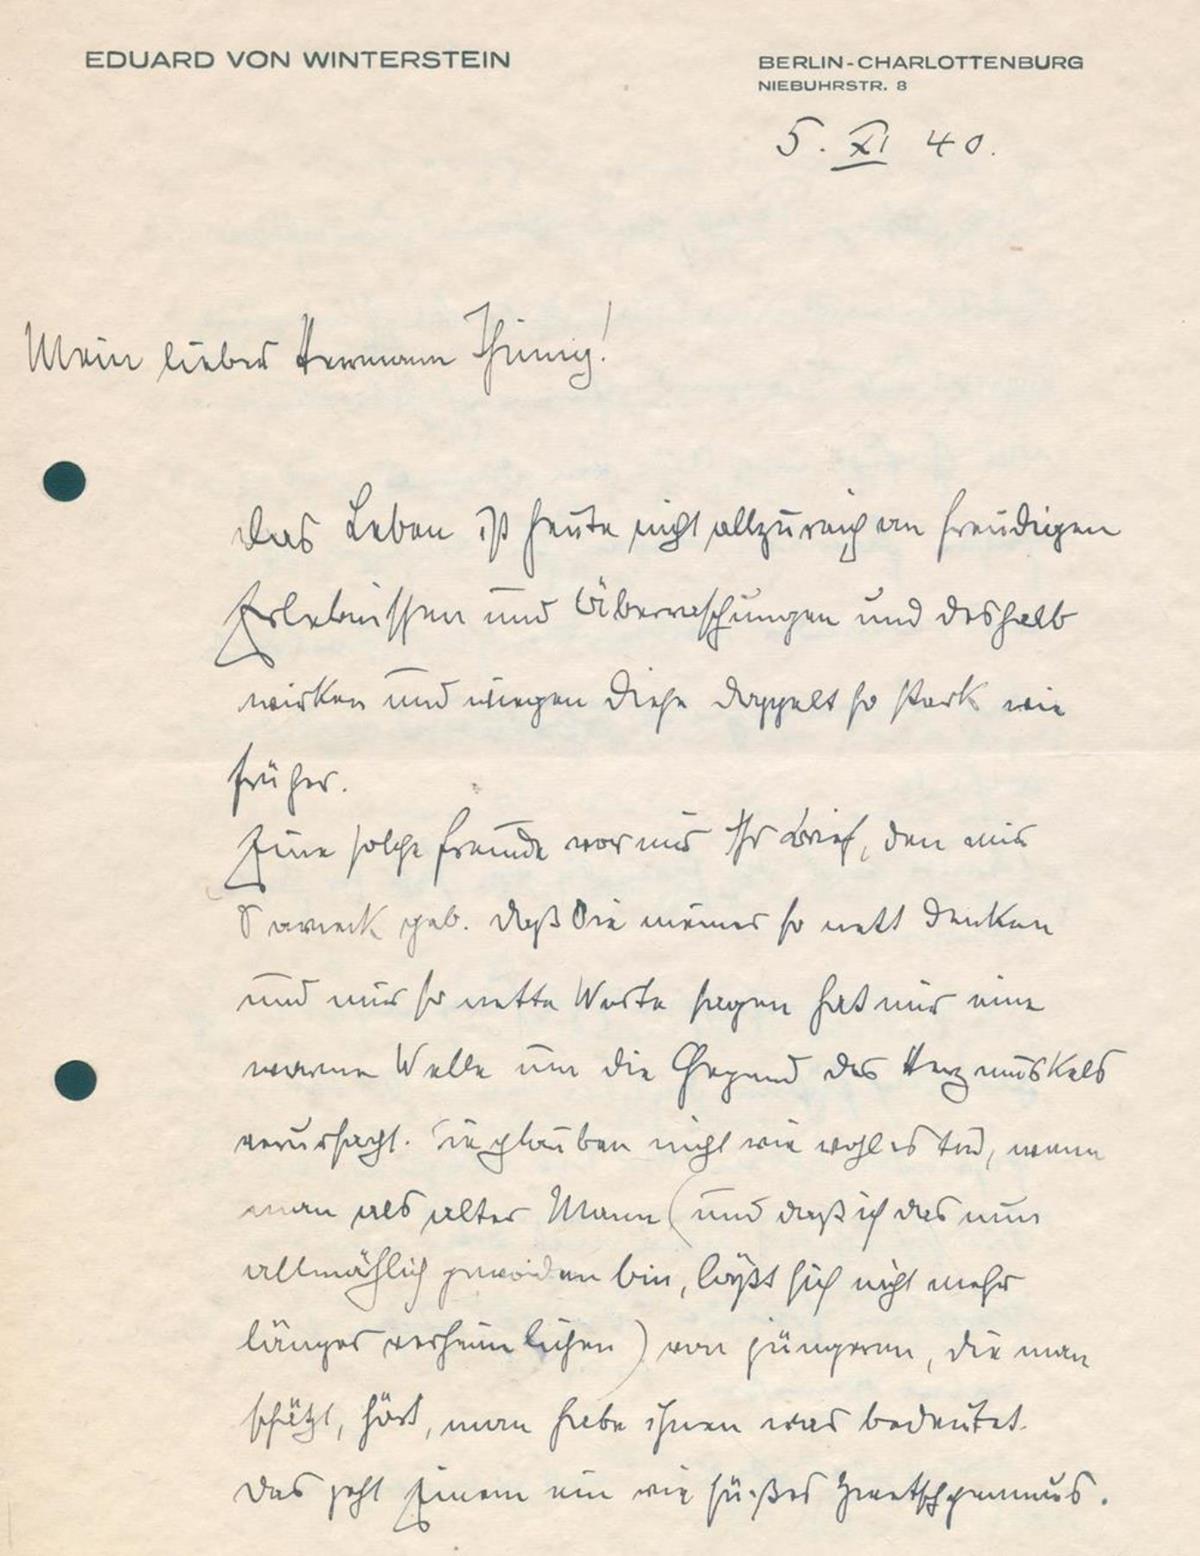 EDUARD VON WINTERSTEIN
BERLIN-CHARLOTTENBURG
NIEBUHRSTR. 8
5. XI 40.
Mein lieber Hermann Thimig!
Das Leben ist heute nicht allzureich an freudigen
Erlebnissen und Überraschungen und deshalb
wirken und wiegen diese doppelt so stark wie
früher.
Eine solche Freude war mir Ihr Brief, den mir
geb. Daß Sie meiner so nett denken
und mir so nette Worte sagen hat mir eine
warme Welle um die Gegend des Herzmuskels
verursacht. Sie glauben nicht wie wohl es tut, wenn
man als alter Mann (und daß ich das nun
allmählich geworden bin, läßt sich nicht mehr
länger verheimlichen) von jüngeren, die man
schätzt, hört, man habe ihnen was bedeutet.
Das geht Einem ein wie süßes Zwetschgenmus.